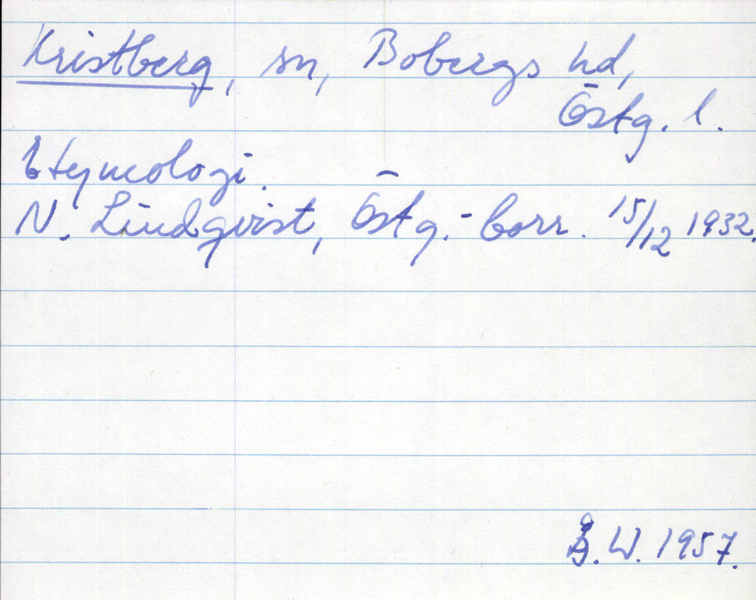 Kristberg, sn, Bobergs hd,
Östg. l.
Etymologi.
N. Lindqvist, Östg.-Corr. 15/12 1932.
Å.W. 1957.